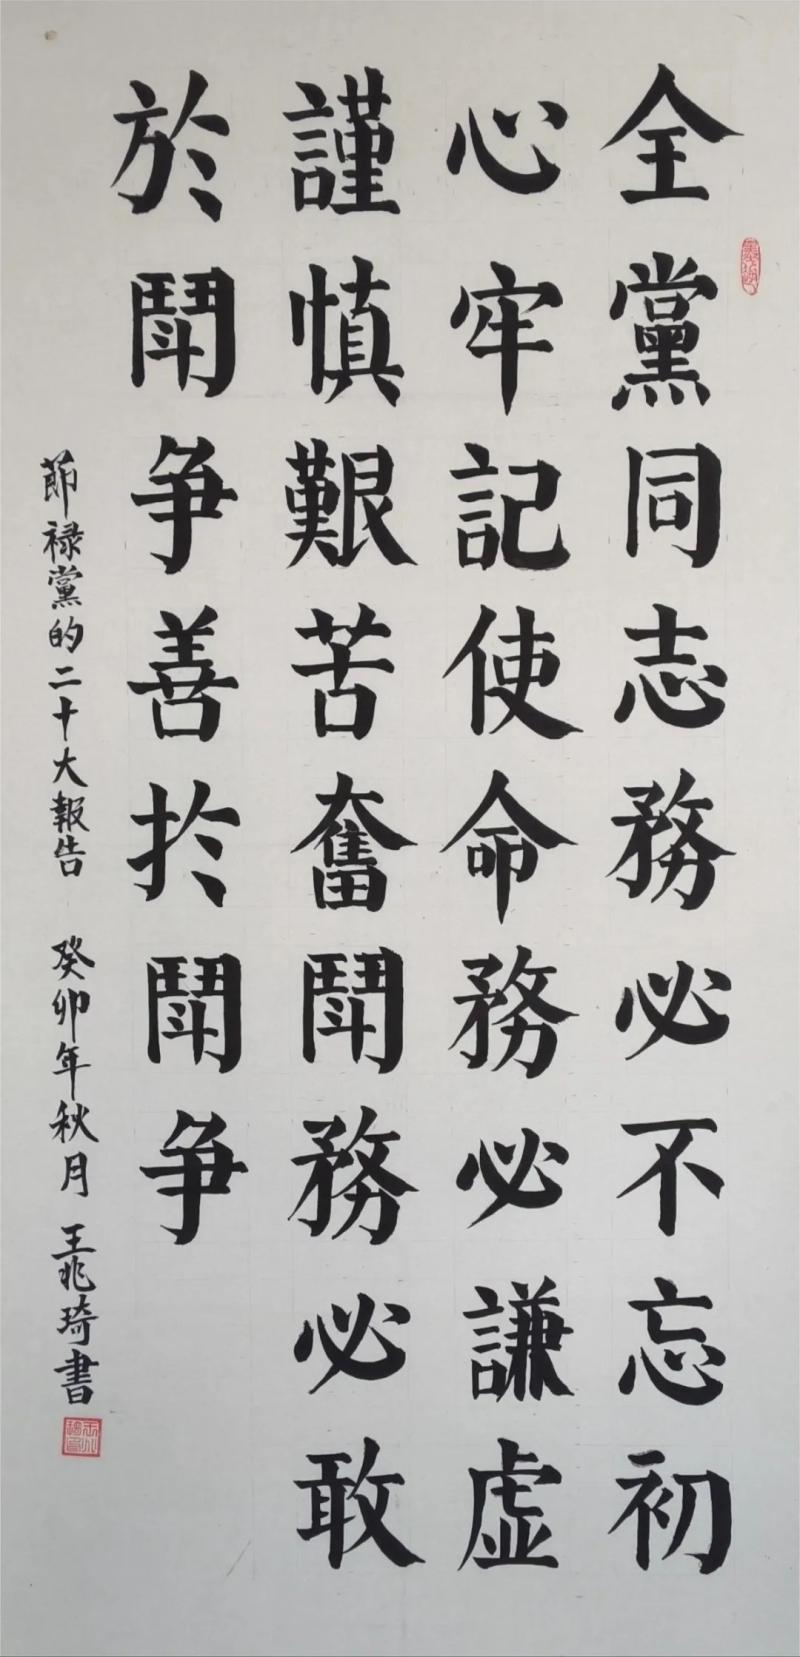 全黨同志務必不忘初
心牢記使命務必謙虛
謹慎艱苦奮鬭務必敢
於鬭争善於鬭争
節禄黨的二十大報告 癸卯年秋月 王兆琦書